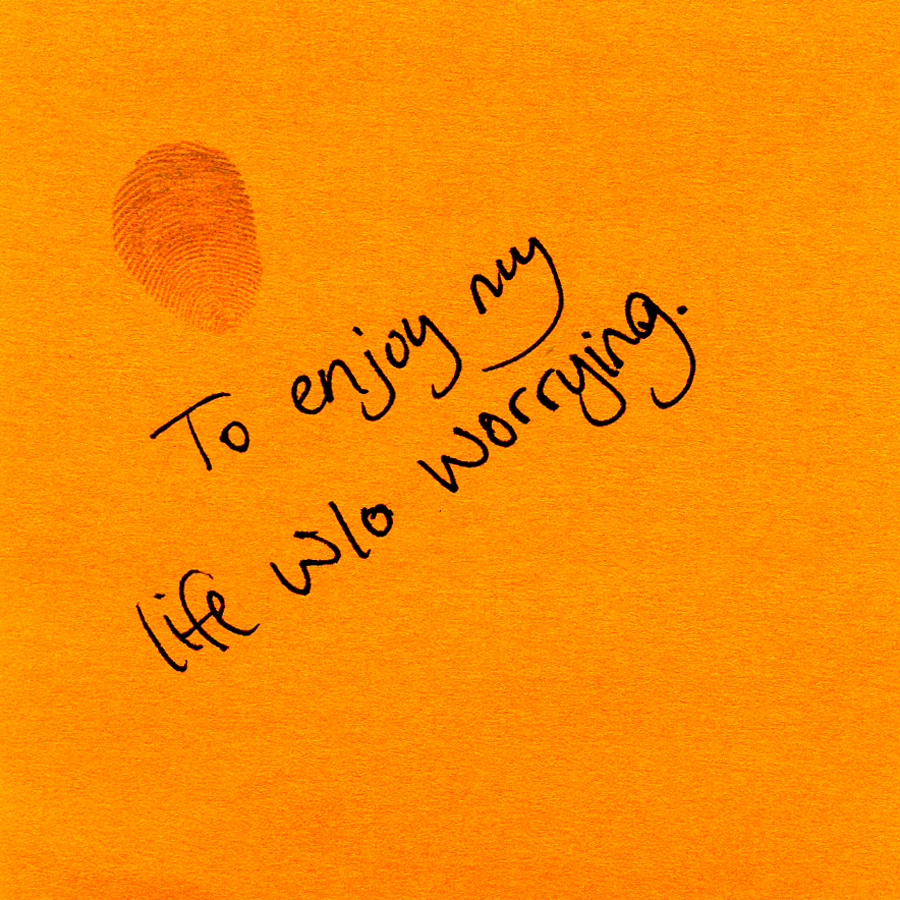 To enjoy my
life w/o worrying.